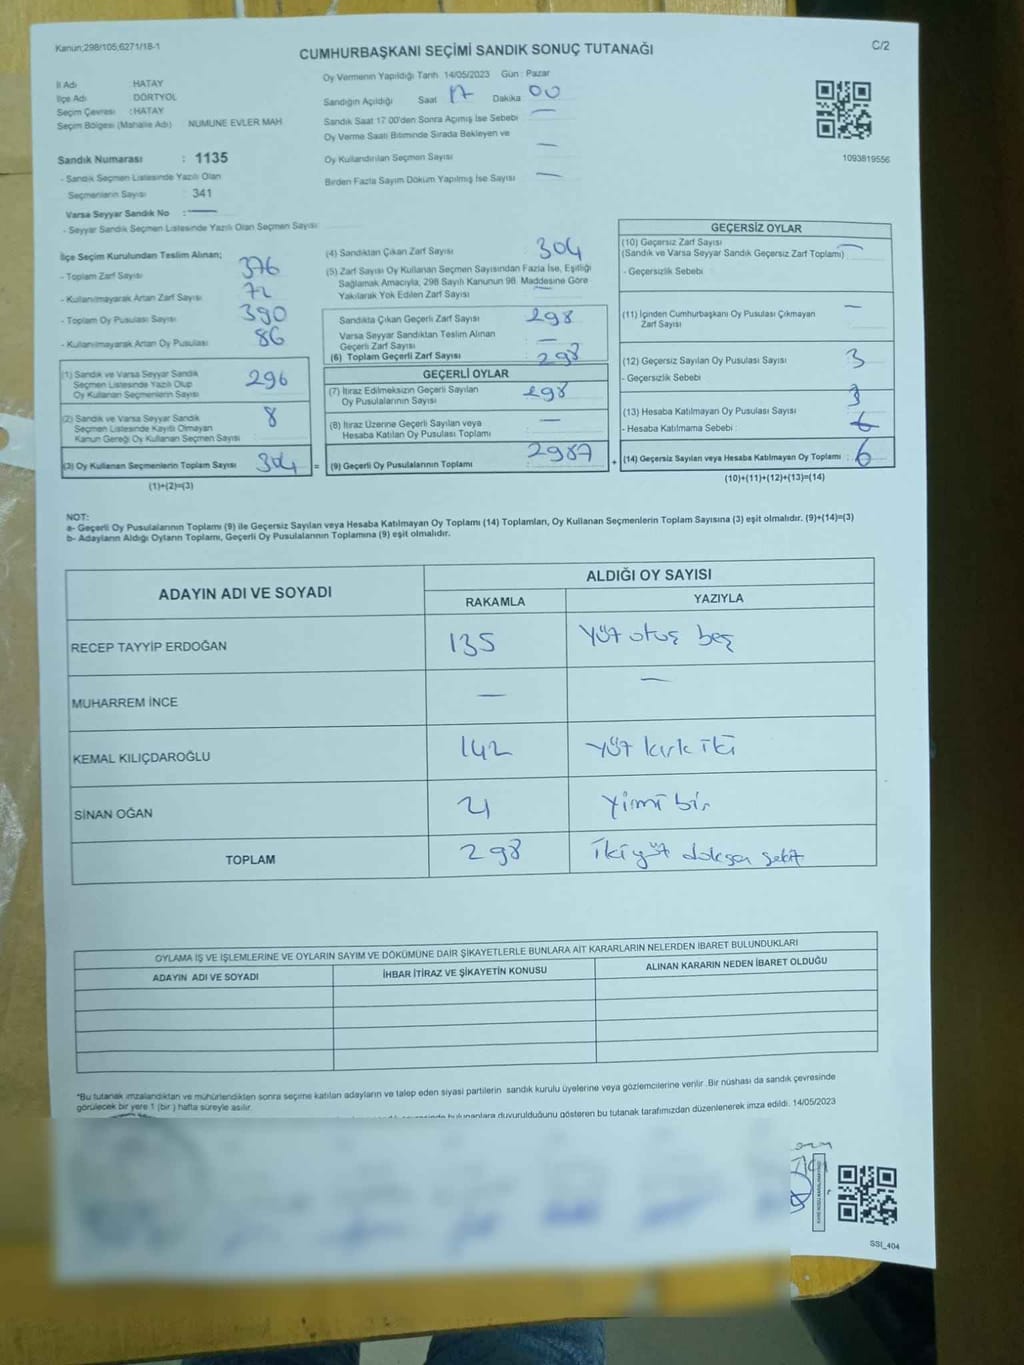 Kanun;298/105;6271/18-1
CUMHURBAŞKANI SEÇİMİ SANDIK SONUÇ TUTANAĞI
C/2
İl Adı HATAY
İlçe Adı DÖRTYOL
Seçim Çevresi : HATAY
Seçim Bölgesi (Mahalle Adı) NUMUNE EVLER MAH
Sandık Numarası : 1135
- Sandık Seçmen Listesinde Yazılı Olan
Seçmenlerin Sayısı 341
Varsa Seyyar Sandık No : —
- Seyyar Sandık Seçmen Listesinde Yazılı Olan Seçmen Sayısı
Oy Vermenin Yapıldığı Tarih 14/05/2023 Gün : Pazar
Sandığın Açıldığı Saat 17 Dakika 00
Sandık Saat 17:00'den Sonra Açılmış İse Sebebi —
Oy Verme Saati Bitiminde Sırada Bekleyen ve
Oy Kullandırılan Seçmen Sayısı —
Birden Fazla Sayım Döküm Yapılmış İse Sayısı —
1093819556
İlçe Seçim Kurulundan Teslim Alınan;
- Toplam Zarf Sayısı 376
- Kullanılmayarak Artan Zarf Sayısı 72
- Toplam Oy Pusulası Sayısı 390
- Kullanılmayarak Artan Oy Pusulası 86
(1) Sandık ve Varsa Seyyar Sandık
Seçmen Listesinde Yazılı Olup
Oy Kullanan Seçmenlerin Sayısı 296
(2) Sandık ve Varsa Seyyar Sandık
Seçmen Listesinde Kayıtlı Olmayan
Kanun Gereği Oy Kullanan Seçmen Sayısı 8
(3) Oy Kullanan Seçmenlerin Toplam Sayısı 304 =
(1)+(2)=(3)
(4) Sandıktan Çıkan Zarf Sayısı 304
(5) Zarf Sayısı Oy Kullanan Seçmen Sayısından Fazla İse, Eşitliği
Sağlamak Amacıyla, 298 Sayılı Kanunun 98. Maddesine Göre
Yakılarak Yok Edilen Zarf Sayısı —
Sandıkta Çıkan Geçerli Zarf Sayısı 298
Varsa Seyyar Sandıktan Teslim Alınan
Geçerli Zarf Sayısı —
(6) Toplam Geçerli Zarf Sayısı 298
GEÇERLİ OYLAR
(7) İtiraz Edilmeksizin Geçerli Sayılan
Oy Pusulalarının Sayısı 298
(8) İtiraz Üzerine Geçerli Sayılan veya
Hesaba Katılan Oy Pusulası Toplamı —
(9) Geçerli Oy Pusulalarının Toplamı +
GEÇERSİZ OYLAR
(10) Geçersiz Zarf Sayısı —
(Sandık ve Varsa Seyyar Sandık Geçersiz Zarf Toplamı)
- Geçersizlik Sebebi
(11) İçinden Cumhurbaşkanı Oy Pusulası Çıkmayan
Zarf Sayısı —
(12) Geçersiz Sayılan Oy Pusulası Sayısı 3
- Geçersizlik Sebebi
(13) Hesaba Katılmayan Oy Pusulası Sayısı 3
- Hesaba Katılmama Sebebi :
(14) Geçersiz Sayılan veya Hesaba Katılmayan Oy Toplamı : 6
(10)+(11)+(12)+(13)=(14)
NOT:
a- Geçerli Oy Pusulalarının Toplamı (9) ile Geçersiz Sayılan veya Hesaba Katılmayan Oy Toplamı (14) Toplamları, Oy Kullanan Seçmenlerin Toplam Sayısına (3) eşit olmalıdır. (9)+(14)=(3)
b- Adayların Aldığı Oyların Toplamı, Geçerli Oy Pusulalarının Toplamına (9) eşit olmalıdır.
ADAYIN ADI VE SOYADI ALDIĞI OY SAYISI
RAKAMLA YAZIYLA
RECEP TAYYİP ERDOĞAN 135 Yüz otuz beş
MUHARREM İNCE — —
KEMAL KILIÇDAROĞLU 142 Yüz kırk iki
SİNAN OĞAN 21 Yimi bir
TOPLAM 298 İkiyüz doksan sekiz
OYLAMA İŞ VE İŞLEMLERİNE VE OYLARIN SAYIM VE DÖKÜMÜNE DAİR ŞİKAYETLERLE BUNLARA AİT KARARLARIN NELERDEN İBARET BULUNDUKLARI
ADAYIN ADI VE SOYADI İHBAR İTİRAZ VE ŞİKAYETİN KONUSU ALINAN KARARIN NEDEN İBARET OLDUĞU
*Bu tutanak imzalandıktan ve mühürlendikten sonra seçime katılan adayların ve talep eden siyasi partilerin sandık kurulu üyelerine veya gözlemcilerine verilir .Bir nüshası da sandık çevresinde
görülecek bir yere 1 (bir ) hafta süreyle asılır.
bulunanlara duyurulduğunu gösteren bu tutanak tarafımızdan düzenlenerek imza edildi. 14/05/2023
SSI_404